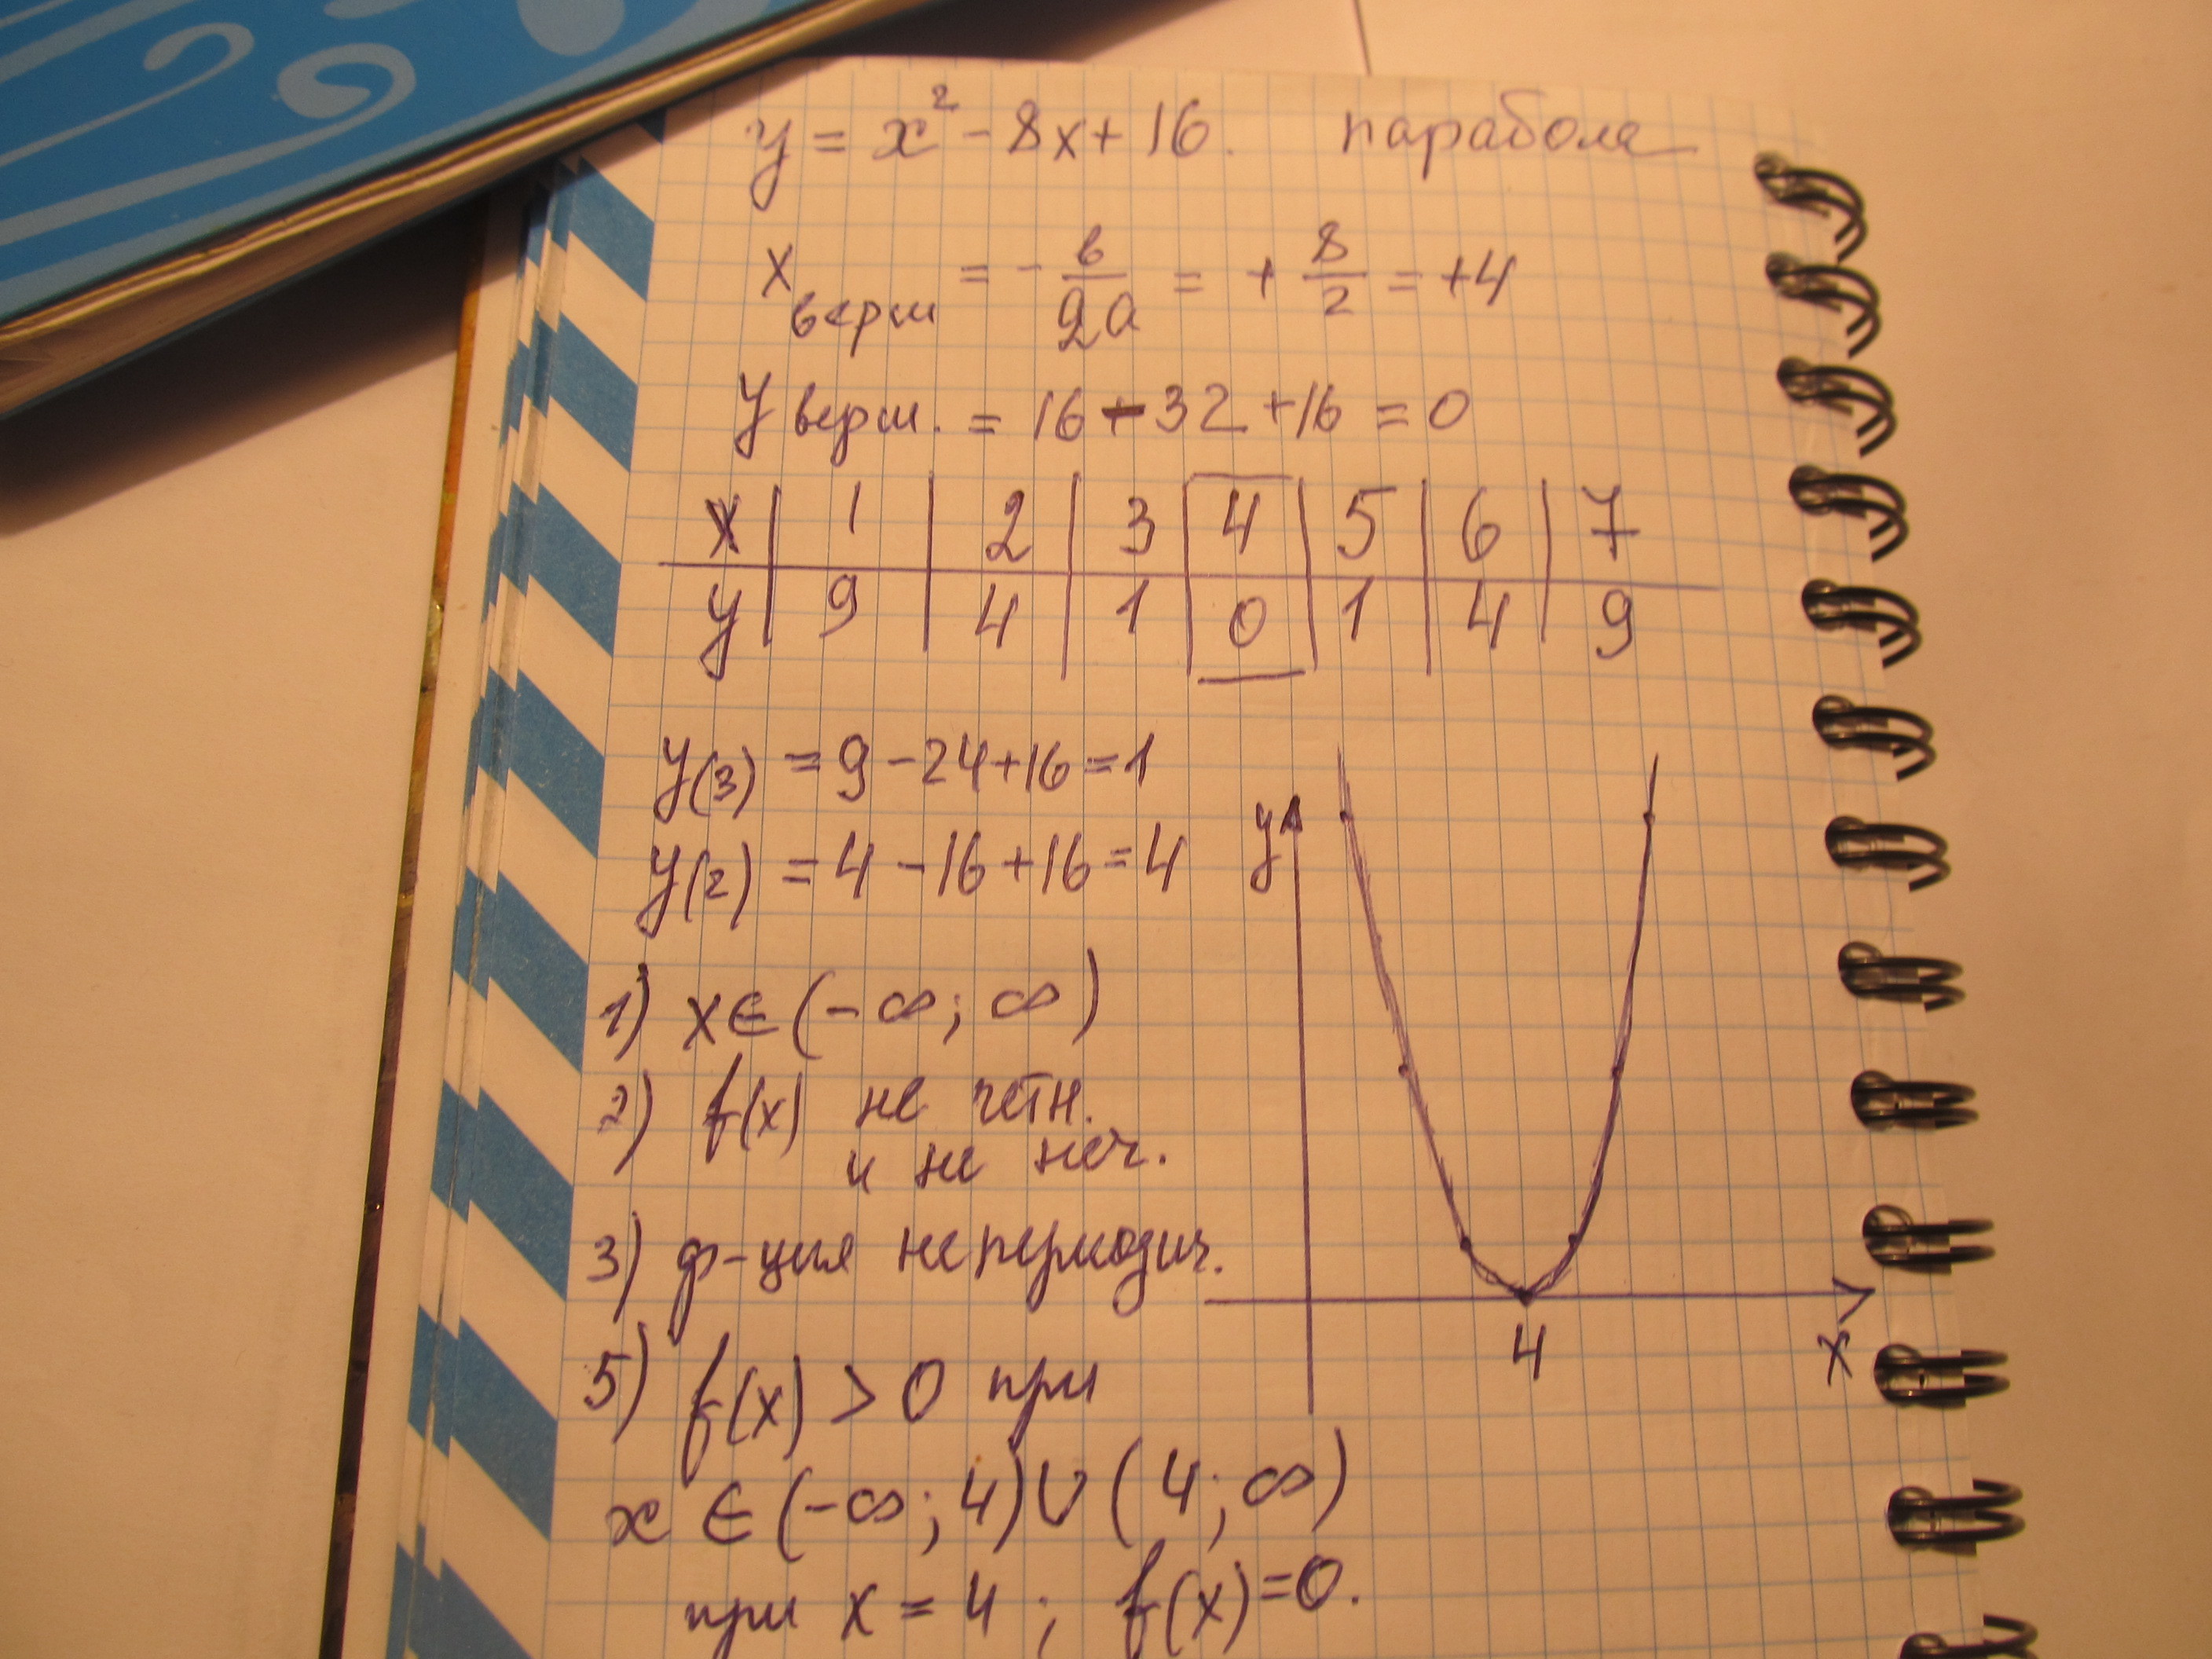 y = x² - 8x + 16. парабола
x верш = - в/2a = + 8/2 = +4
y верш. = 16 - 32 + 16 = 0
x | 1 | 2 | 3 | 4 | 5 | 6 | 7
y | 9 | 4 | 1 | 0 | 1 | 4 | 9
y(3) = 9 - 24 + 16 = 1
y(2) = 4 - 16 + 16 = 4
1) x ∈ (-∞; ∞)
2) f(x) не четн.
и не неч.
3) ф-ция непериодич.
5) f(x) > 0 при
x ∈ (-∞; 4) ∪ (4; ∞)
при x = 4; f(x) = 0.
y
4
x